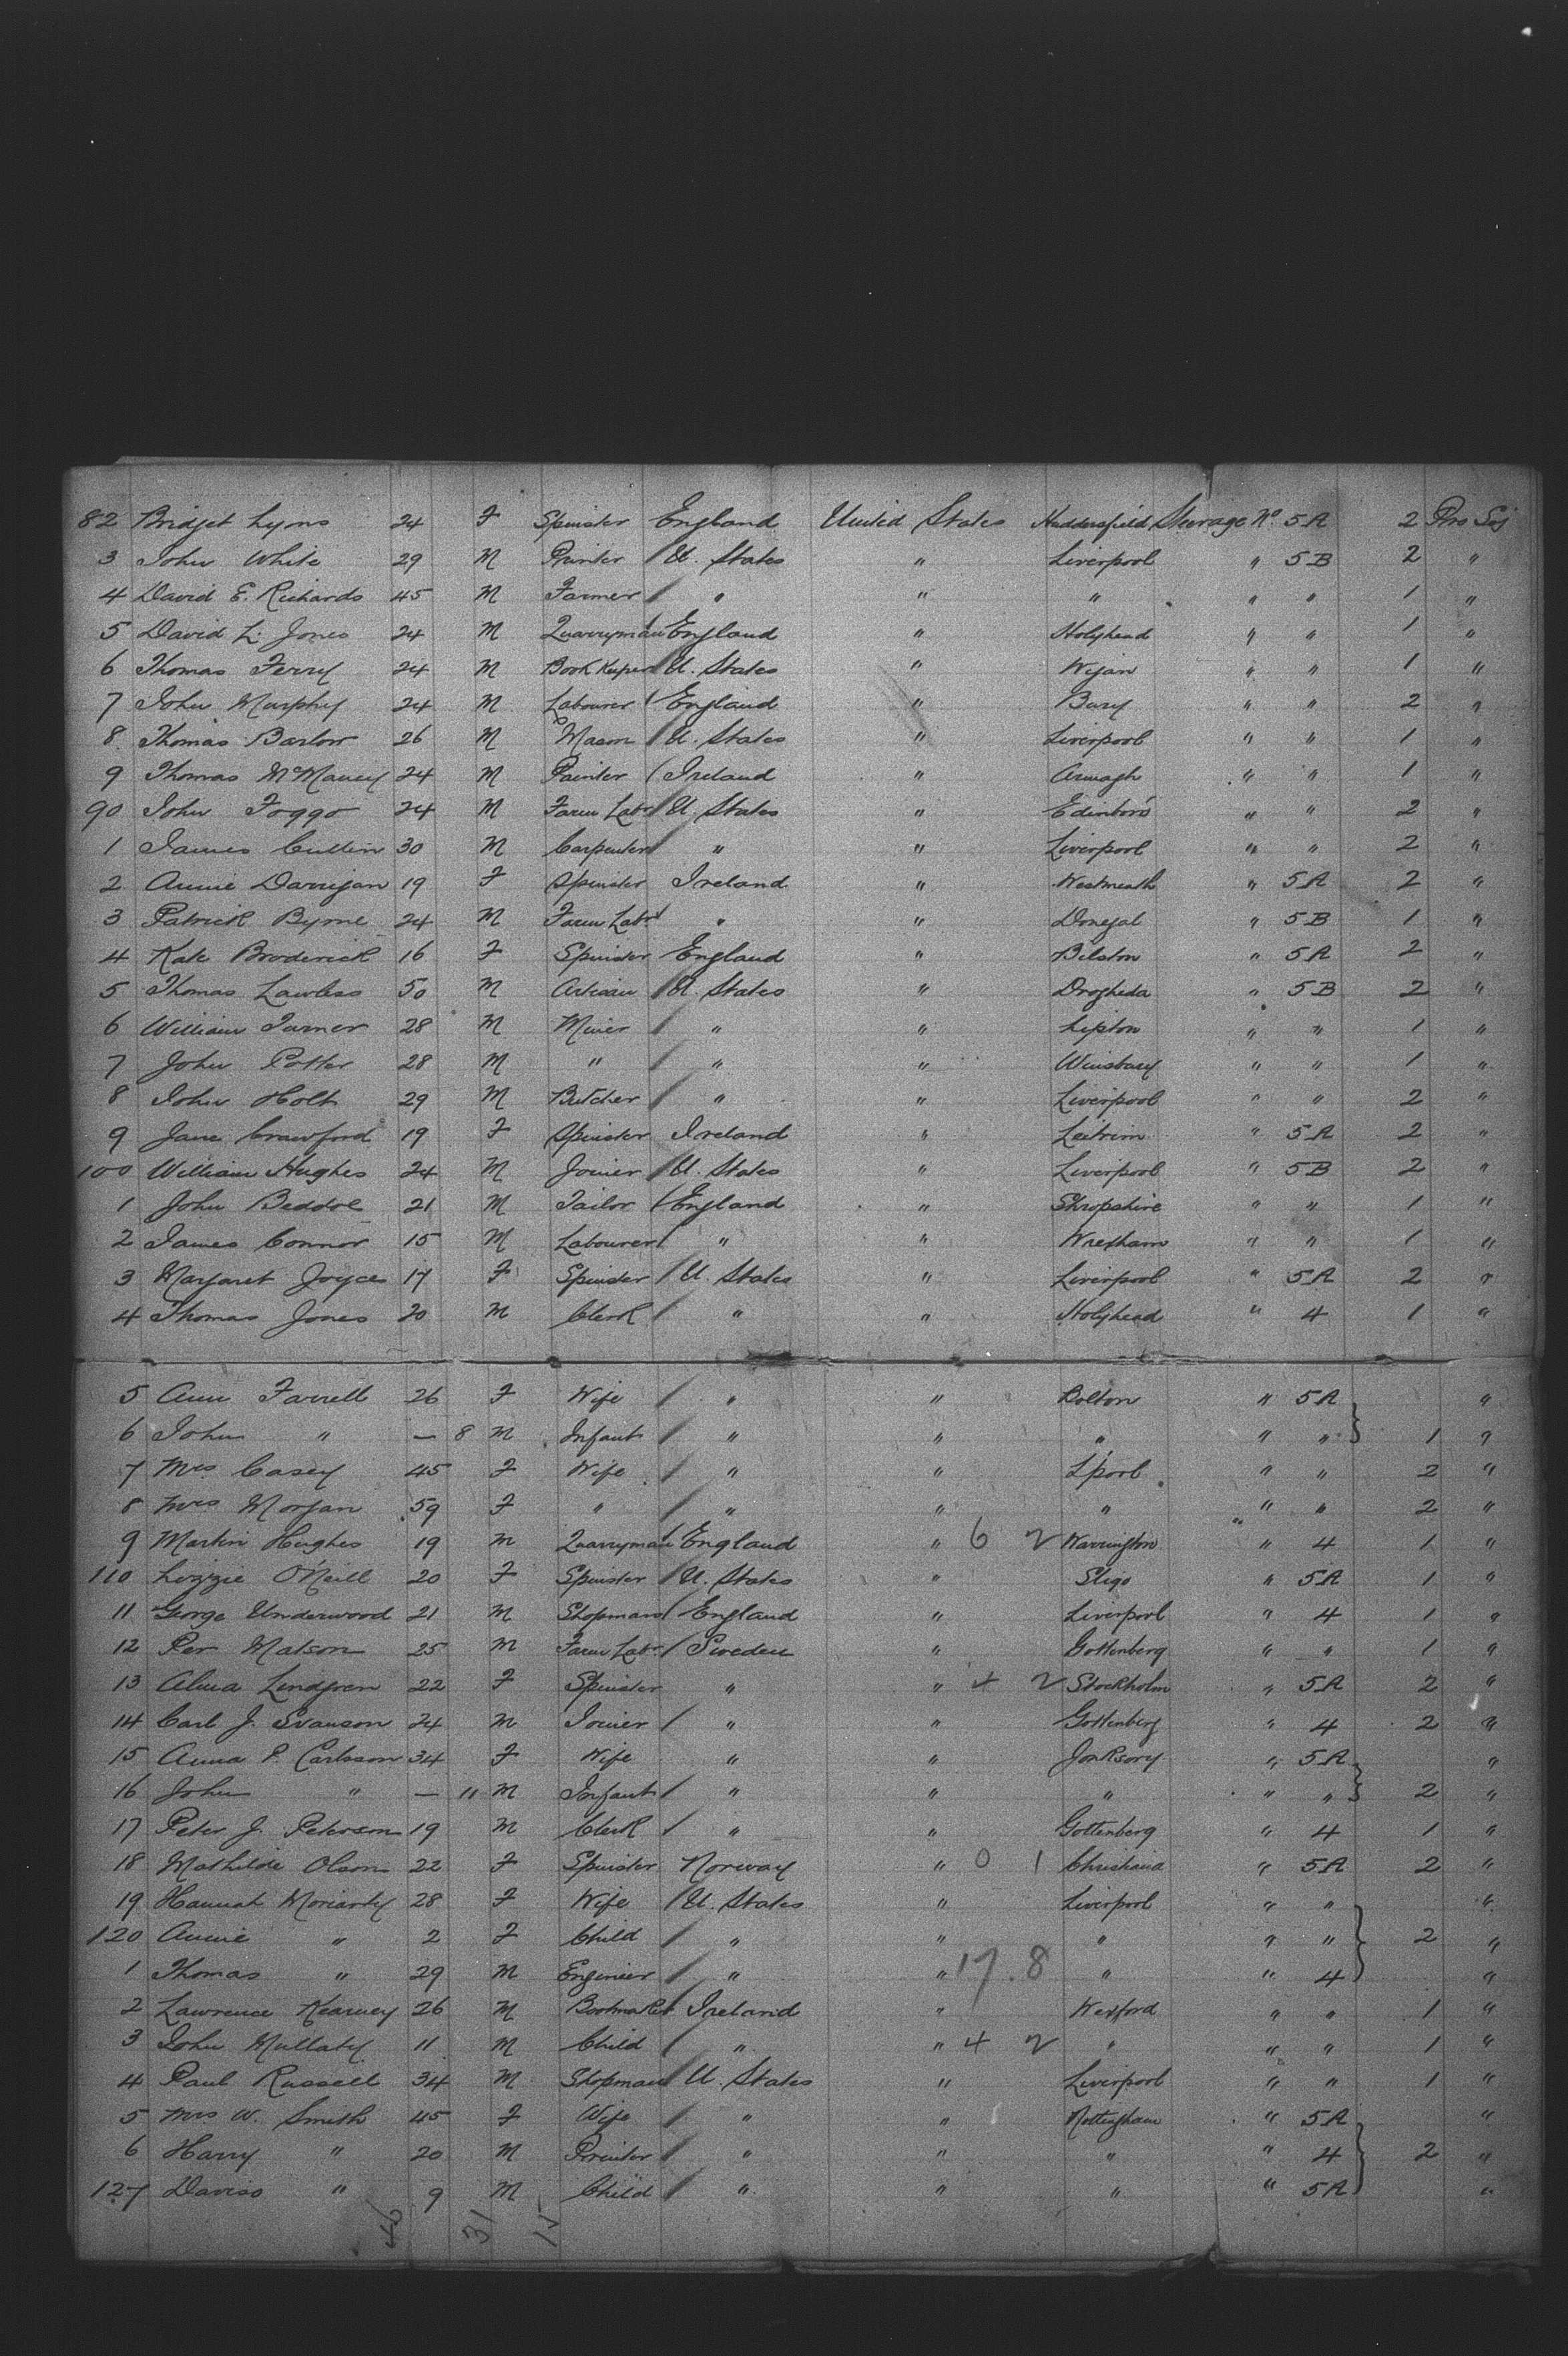 82 Bridget Lyons 24 F Spinster England United States Huddersfield Steerage No. 5A 2 Pro Soj
3 John White 29 M Printer / U. States " Liverpool " 5B 2 "
4 David E. Richards 45 M Farmer / " " " " " 1 "
5 David L. Jones 24 M Quarryman / England " Holyhead " " 1 "
6 Thomas Ferry 24 M Book Keeper / U. States " Wigan " " 1 "
7 John Murphy 24 M Labourer / England " Bury " " 2 "
8 Thomas Barlow 26 M Mason / U. States " Liverpool " " 1 "
9 Thomas 24 M Painter / Ireland " Armagh " " 1 "
90 John Foggo 24 M Farm Labr / U States " Edinboro " " 2 "
1 James Cullin 30 M Carpenter / " " Liverpool " " 2 "
2 Annie Darrigan 19 F Spinster Ireland " Westmeath " 5A 2 "
3 Patrick Byrne 24 M Farm Labr / " " Donegal " 5B 1 "
4 Kate Broderick 16 F Spinster England " Bilston " 5A 2 "
5 Thomas Lawless 50 M Artisan / U. States " Drogheda " 5B 2 "
6 William Turner 28 M Miner / " " Lipton " " 1 "
7 John Potter 28 M " / " " " " 1 "
8 John Holt 29 M Butcher / " " Liverpool " " 2 "
9 Jane Crawford 19 F Spinster Ireland " Leitrim " 5A 2 "
100 William Hughes 24 M Joiner / U. States " Liverpool " 5B 2 "
1 John Beddoe 21 M Tailor / England " Shropshire " " 1 "
2 James Connor 15 M Labourer / " " Wrexham " " 1 "
3 Margaret Joyce 17 F Spinster / U. States " Liverpool " 5A 2 "
4 Thomas Jones 20 M Clerk / " " Holyhead " 4 1 "
5 Ann Farrell 26 F Wife / " " Bolton " 5A "
6 John " — 8 M Infant / " " " " " 1 "
7 Mrs Casey 45 F Wife / " " L'pool " " 2 "
8 Mrs Morgan 59 F " / " " " " " 2 "
9 Martin Hughes 19 M Quarryman / England " 6 2 Warrington " 4 1 "
110 Lizzie O'Neill 20 F Spinster / U. States " Sligo " 5A 1 "
11 George Underwood 21 M Shopman / England " Liverpool " 4 1 "
12 Per Matson 25 M Farm Labr / Sweden " Gottenberg " " 1 "
13 Alma Lindgren 22 F Spinster " " 4 2 Stockholm " 5A 2 "
14 Carl J. Svanson 24 M Joiner / " " Gottenberg " 4 2 "
15 Anna P. Carlsson 34 F Wife " " " 5A "
16 John " — 11 M Infant / " " " " " 2 "
17 Peter J. Peterson 19 M Clerk / " " Gottenberg " 4 1 "
18 Mathilde Olson 22 F Spinster Norway " 0 1 Christiania " 5A 2 "
19 Hannah Moriarty 28 F Wife / U. States " Liverpool " " "
120 Annie " 2 F Child / " " " " " 2 "
1 Thomas " 29 M Engineer / " " 17.8 " " 4 "
2 Lawrence Kearney 26 M Bootmaker Ireland " Wexford " " 1 "
3 John Mullaly 11 M Child / " " 4 2 " " " 1 "
4 Paul Russell 34 M Shopman U. States " Liverpool " " 1 "
5 Mrs W. Smith 45 F Wife / " " Nottingham " 5A "
6 Harry " 20 M Printer / " " " " 4 2 "
127 Daviso " 9 M Child / " " " " 5A "
46 31 15